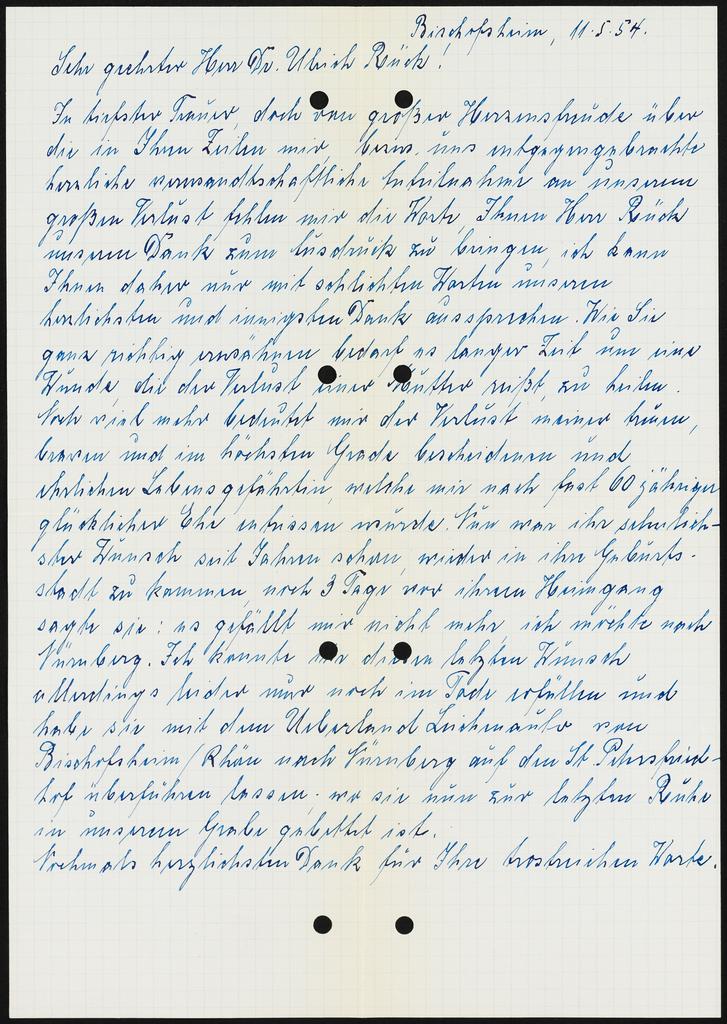 Bischofsheim, 11.5.54.
Sehr geehrter Herr Dr. Ulrich Rück!
In tiefster Trauer, doch von großer Herzensfreude über
die in Ihren Zeilen mir, bezw. uns entgegengebrachte
herzliche verwandtschaftliche Anteilnahme an unserem
großen Verlust fehlen mir die Worte, Ihnen Herr Rück
unseren Dank zum Ausdruck zu bringen, ich kann
Ihnen daher nur mit schlichten Worten unseren
herzlichsten und innigsten Dank aussprechen. Wie Sie
ganz richtig erwähnen bedarf es langer Zeit um eine
Wunde, die der Verlust einer Mutter reißt, zu heilen.
Noch viel mehr bedeutet mir der Verlust meiner treuen,
braven und im höchsten Grade bescheidenen und
ehrlichen Lebensgefährtin, welche mir nach fast 60 jähriger
glücklicher Ehe entrissen wurde. Nun war ihr sehnlich-
ster Wunsch seit Jahren schon, wieder in ihre Geburts-
stadt zu kommen, noch 3 Tage vor ihrem Heimgang
sagte sie: es gefällt mir nicht mehr, ich möchte nach
Nürnberg. Ich konnte ihr diesen letzten Wunsch
allerdings leider nur noch im Tode erfüllen und
habe sie mit dem Ueberland Leichenauto von
Bischofsheim/Rhön nach Nürnberg auf den St. Petersfried-
hof überführen lassen, wo sie nun zur letzten Ruhe
in unserem Grabe gebettet ist.
Nochmals herzlichsten Dank für Ihre trostreichen Worte.